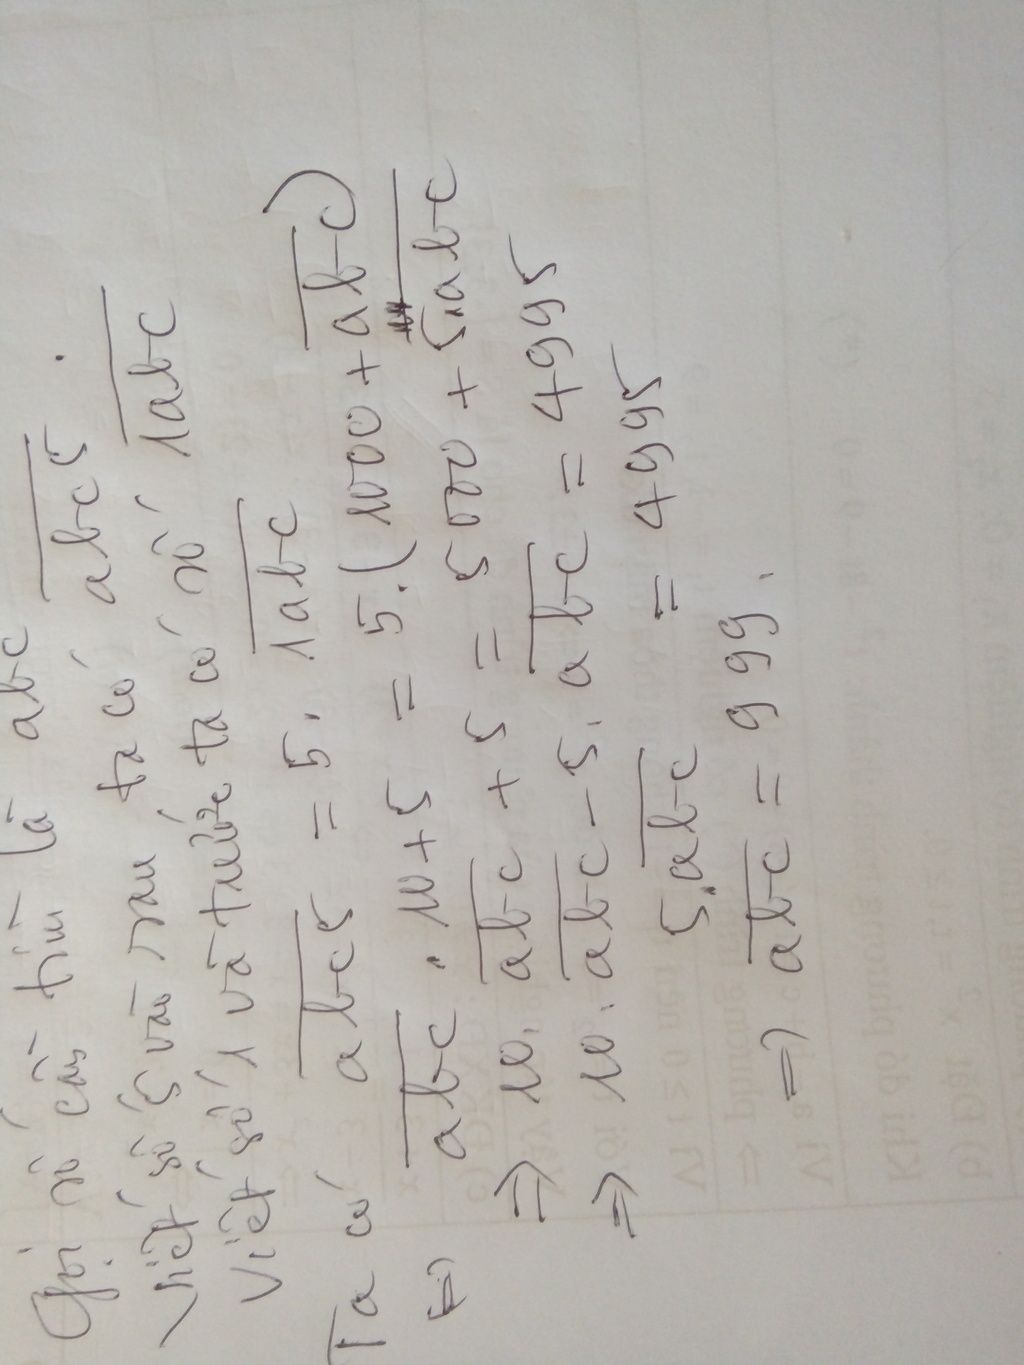 Gọi số cần tìm là abc
Viết số 5 vào sau ta có abc5.
Viết số 1 và trước ta có số 1abc
Ta có abc5 = 5. 1abc
⇔ abc . 10 + 5 = 5.(1000 + abc)
⇒ 10. abc + 5 = 5000 + 5.abc
⇒ 10. abc - 5. abc = 4995
5.abc = 4995
⇒ abc = 999.